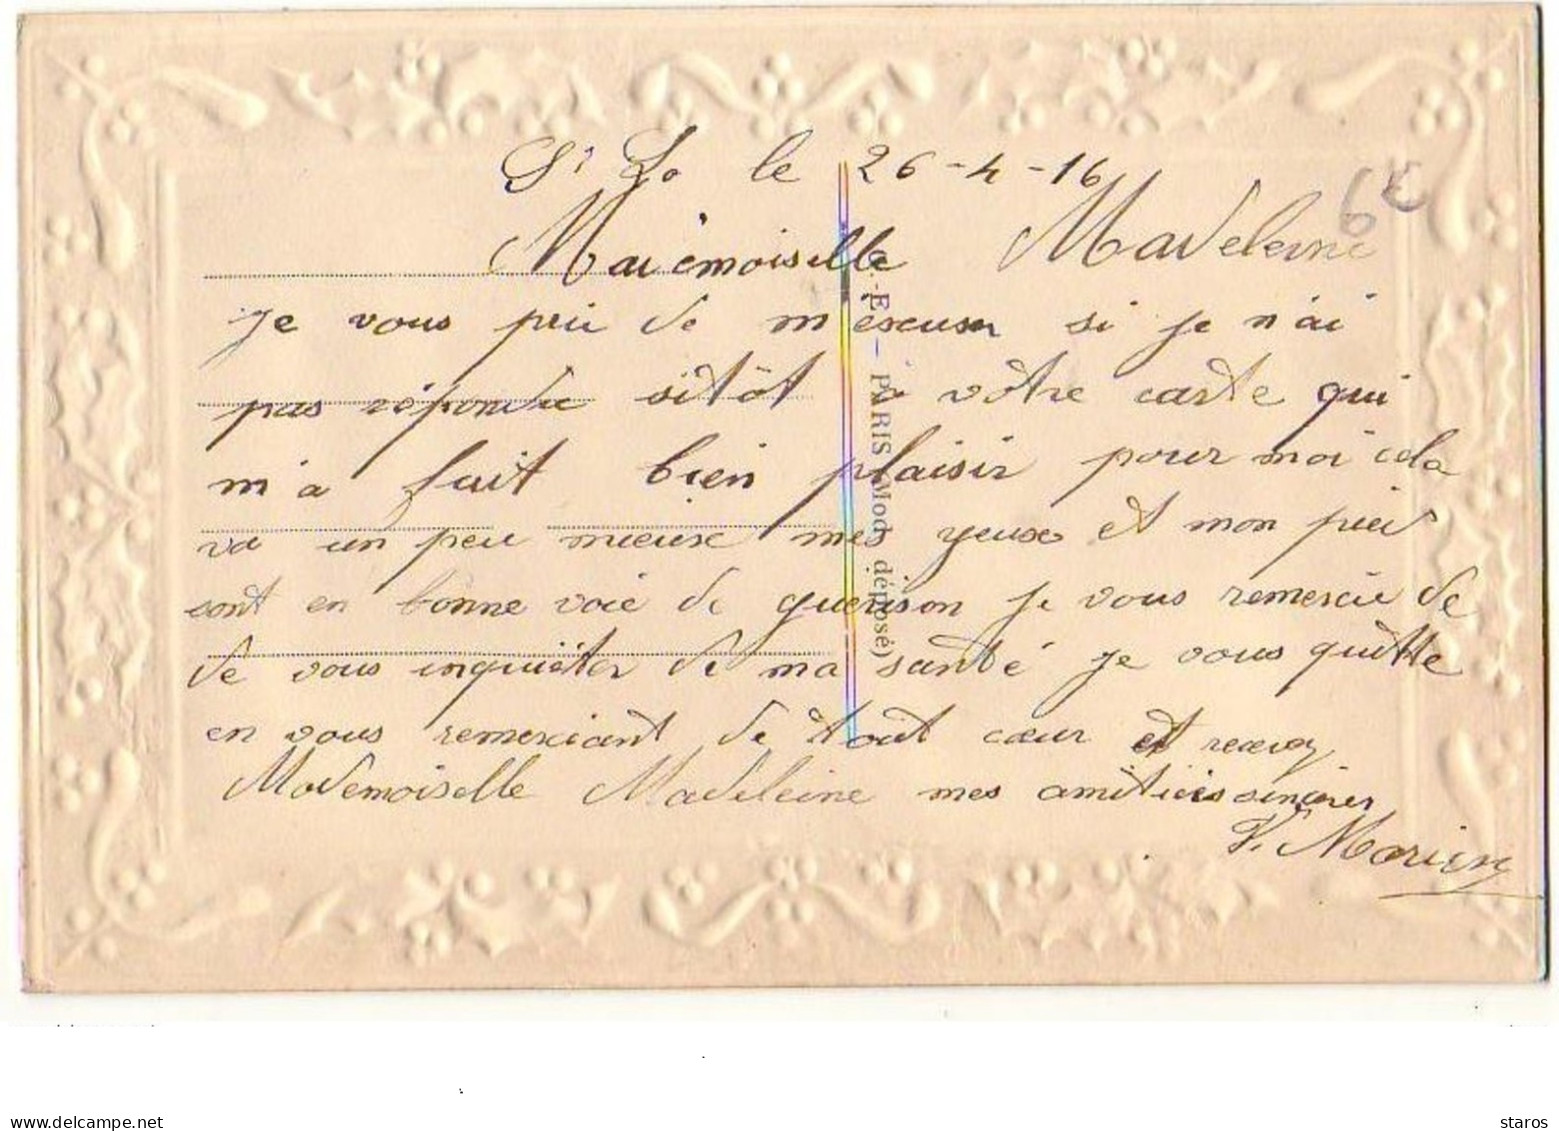 St Lo le 26-4-16
6€
Mademoiselle Madeleine
je vous prie de m'excuser si je n'ai
pas répondu sitôt à votre carte qui
m'a fait bien plaisir pour moi cela
va un peu mieux mes yeuse et mon pied
sont en bonne voie de guerison je vous remercie de
de vous inquiéter de ma santé je vous quitte
en vous remerciant de tout cœur et recevez
Mademoiselle Madeleine mes amitiés sincères
V. Marien
E. — PARIS (Mod. déposé)
www.delcampe.net
staros